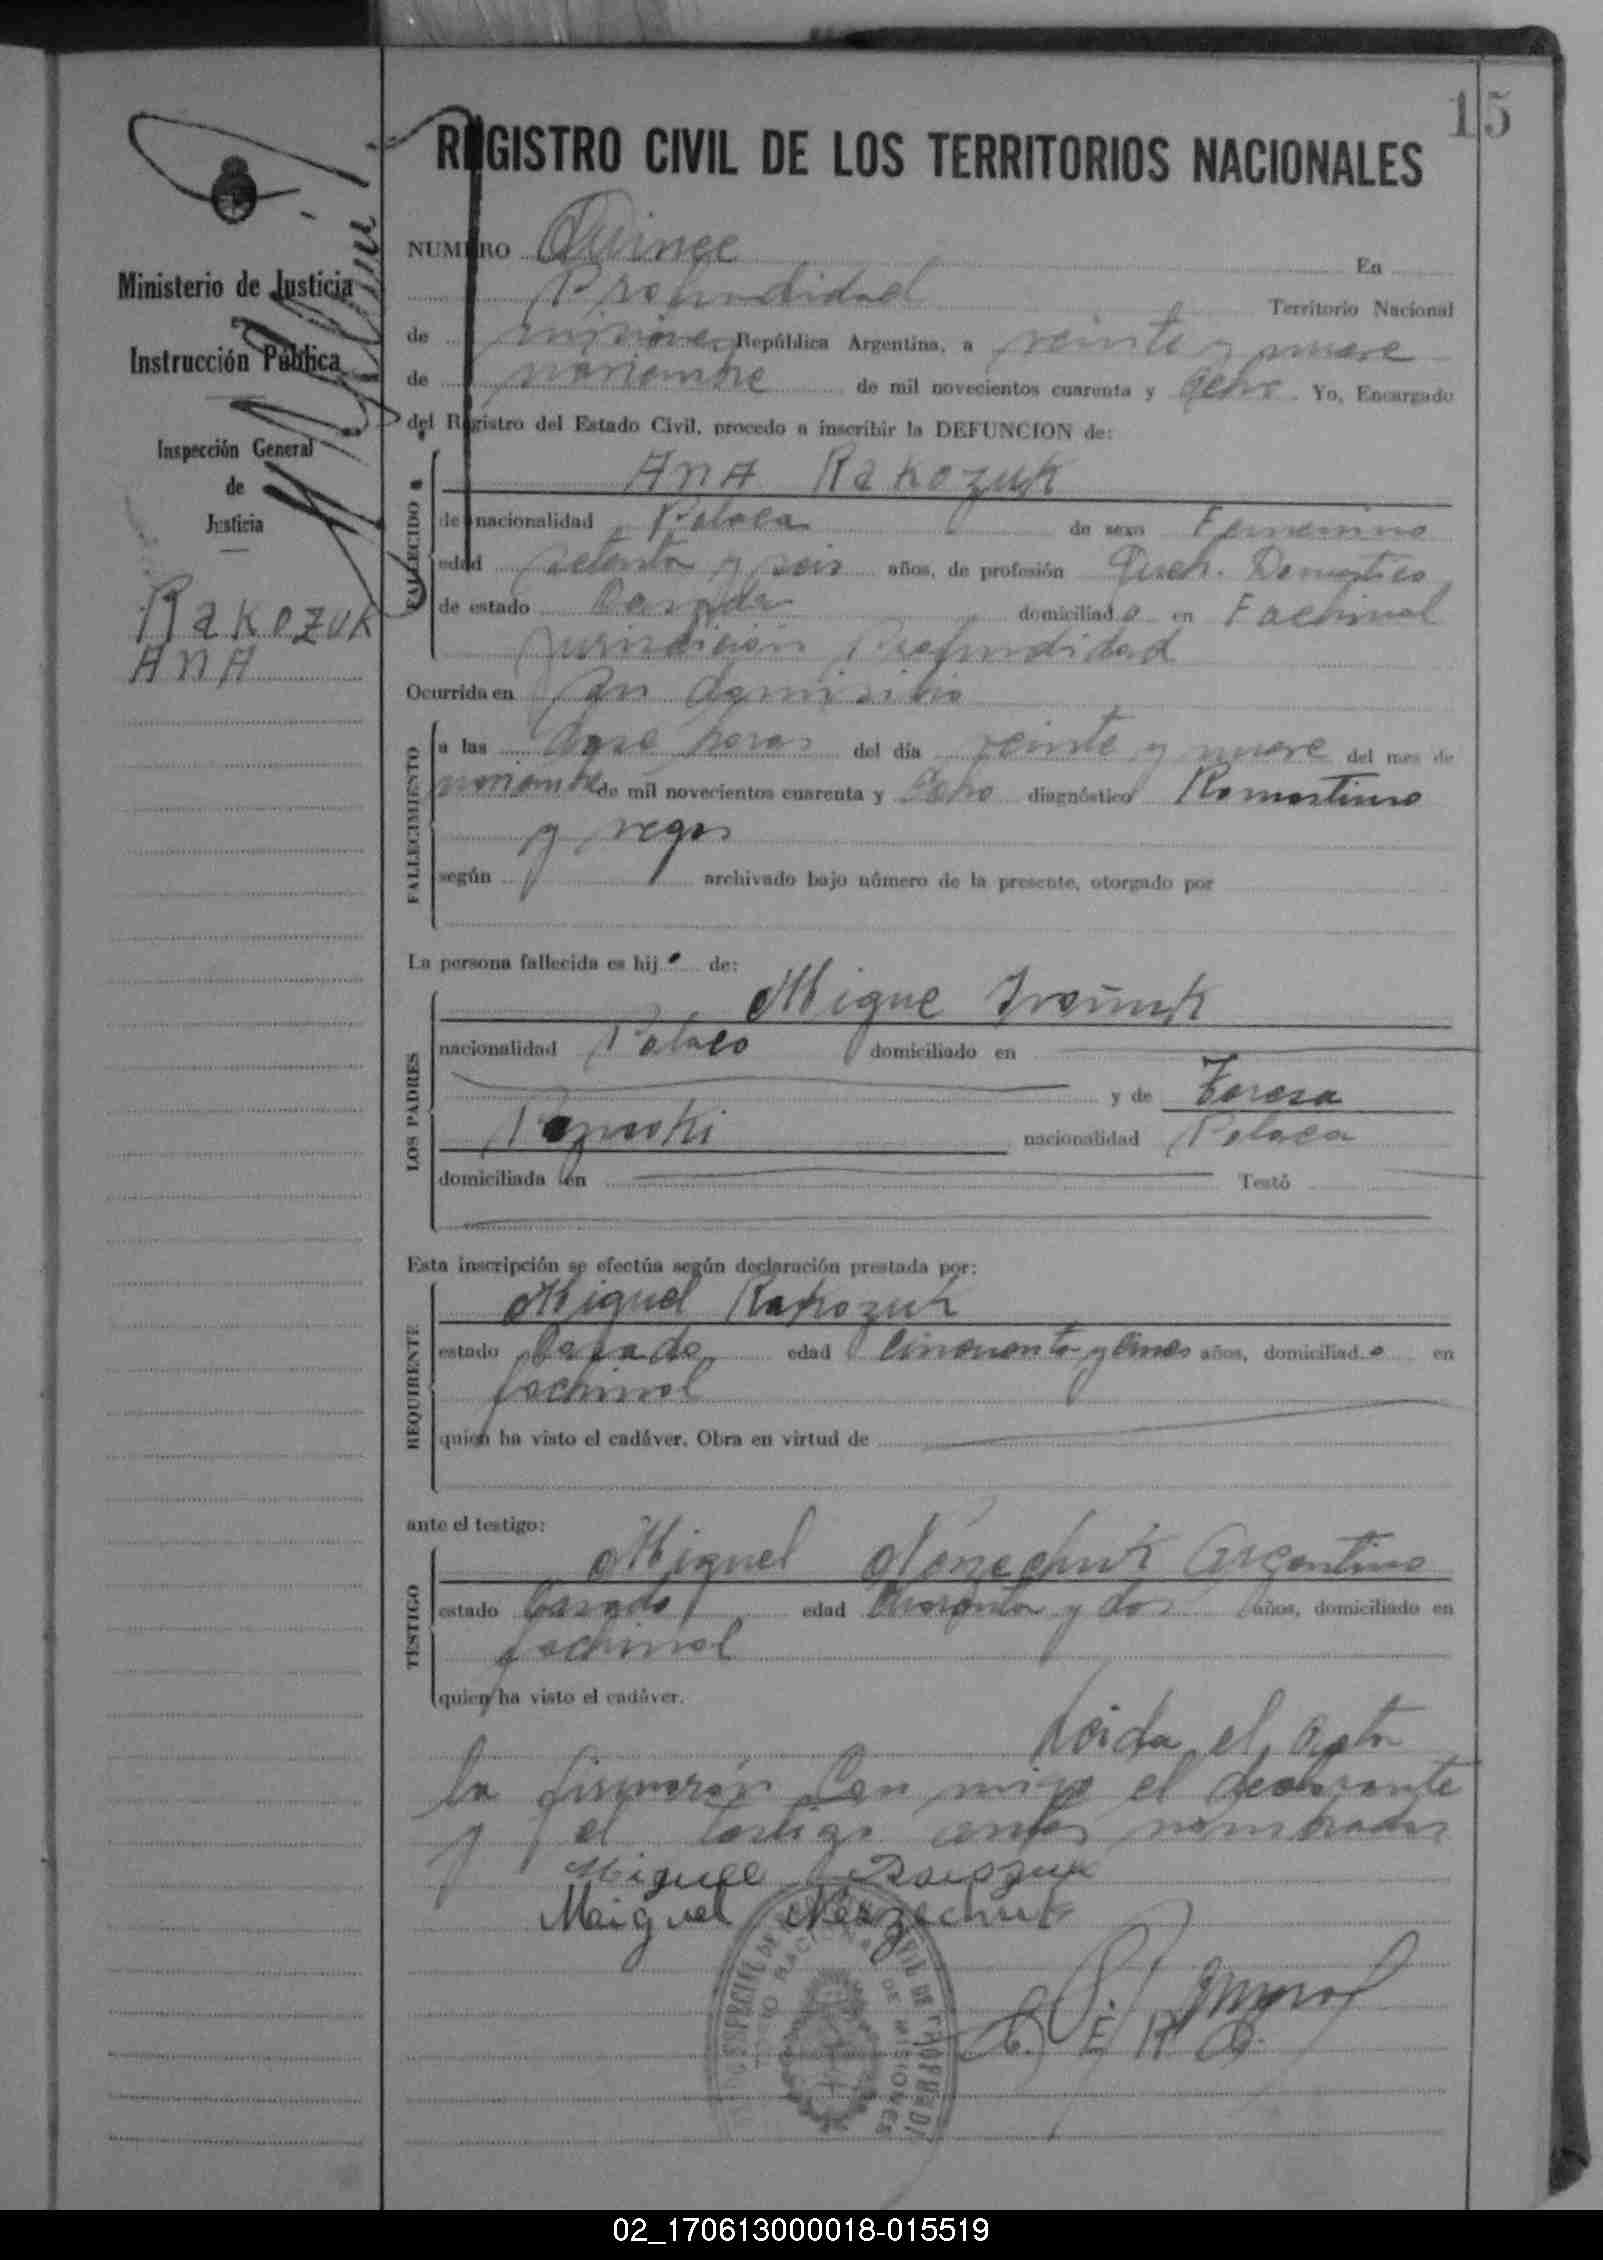 15
REGISTRO CIVIL DE LOS TERRITORIOS NACIONALES
Ministerio de Justicia
Instrucción Pública
Inspección General
de
Justicia
Rakozuk
AnA
NUMERO Quince En
Profundidad Territorio Nacional
de misiones República Argentina, a veinte y nueve
de noviembre de mil novecientos cuarenta y Ocho. Yo, Encargado
del Registro del Estado Civil, procedo a inscribir la DEFUNCION de:
FALLECIDO
AnA Rakozuk
de nacionalidad Polaca de sexo Femenino
edad setenta y seis años, de profesión Queh. Domestico
de estado Casada domiciliad o en Fachinal
jurisdicion Profundidad
Ocurrida en su domisilio
FALLECIMIENTO
a las horas del día veinte y nueve del mes de
noviembre de mil novecientos cuarenta y Ocho diagnóstico Romatismo
y
según archivado bajo número de la presente, otorgado por
La persona fallecida es hij de:
LOS PADRES
Migue
nacionalidad Polaco domiciliado en
y de Teresa
nacionalidad Polaca
domiciliada en Testó
Esta inscripción se efectúa según declaración prestada por:
REQUIRENTE
Miguel Rakozuk
estado Casado edad Cincuenta y Cinco años, domiciliad o en
fachinal
quien ha visto el cadáver. Obra en virtud de
ante el testigo:
TESTIGO
Miguel Nerzechuk Argentino
estado Casado edad Cuarenta y dos años, domiciliado en
fachinal
quien ha visto el cadáver.
Leida el acta
la firmarón Con migo el declarante
y el testigo antes nombrados
Miguel
Maiguel
E. R. C.
02_170613000018-015519